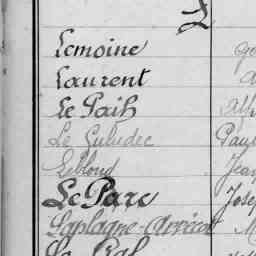 L
Lemoine
Laurent
Le Paih
Le Guludec Paul
Leblond Jean
Le Parc Jose
Laplagne-Arrécot M
Le Gal